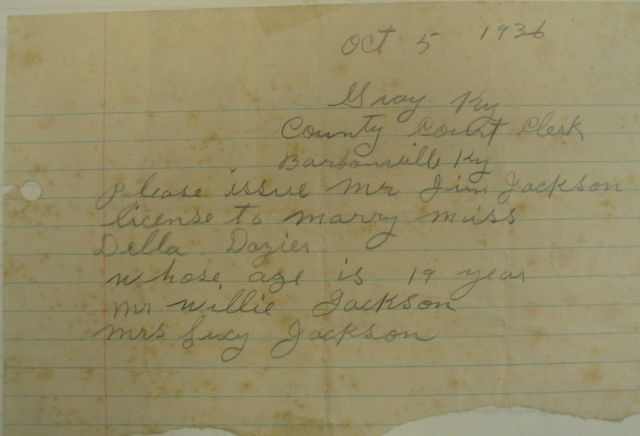 Oct 5 1936
Gray Ky
County Court Clerk
Barbourville Ky
Please issue Mr Jim Jackson
license to marry miss
Della Dozier
whose age is 19 year
Mr Willie Jackson
Mrs Lucy Jackson